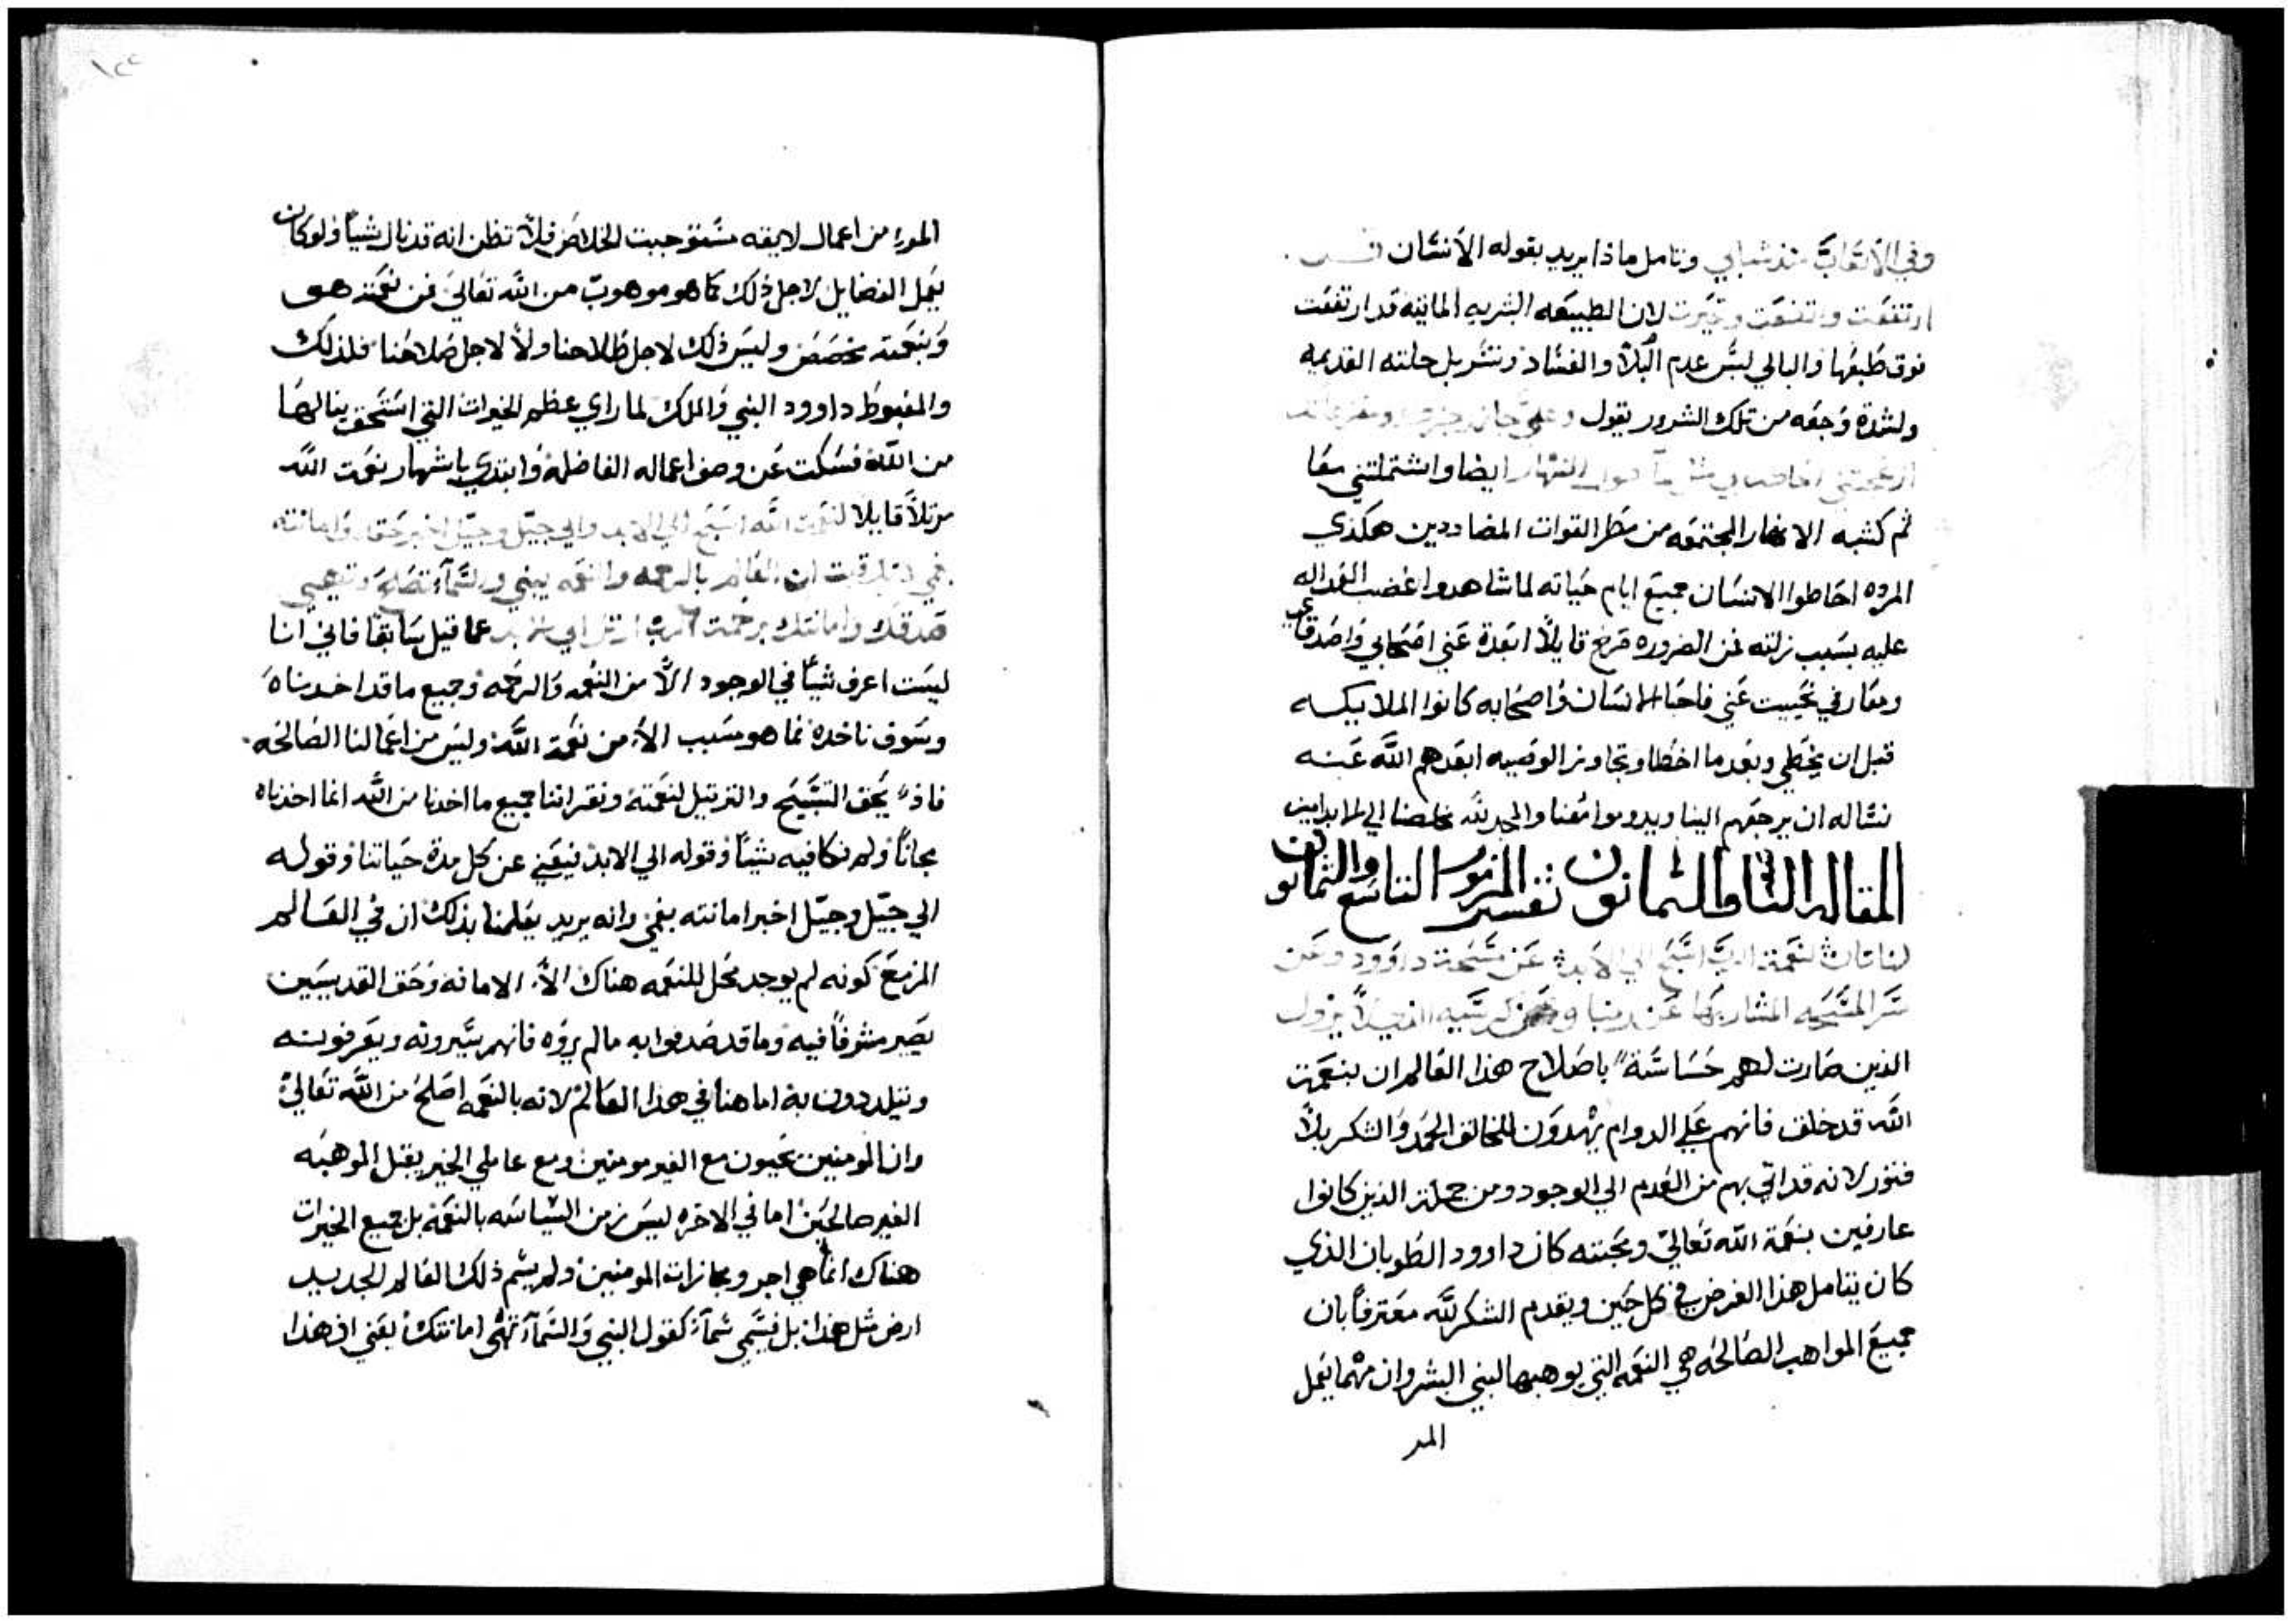 وفي الاتعاب منذ شبابي وتامل ماذا يريد بقوله الانسان
ارتفعت واتضعت وتحيرت لان الطبيعه البشريه المايته قد ارتفعت
فوق طبعها والبالي لبس عدم البلا والفساد وتسربل حلته القديمه
ولشدة وجعه من تلك الشرور يقول وعلي جاز رجزك ومفزعاتك
ازعجتني احاطت بي مثل ما طول النهار ايضا واشتملتني معا
ثم كشبه الانهار المجتمعه من مطر القوات المضاددين هكذي
المرده احاطوا الانسان جميع ايام حياته لما شاهدوا غضب العداله
عليه بسبب زلته فمن الضروره صرخ قايلا ابعدة عني اصحابي واصدقاي
ومعارفي تحييت عني فاحبا الانسان واصحابه كانوا الملايكه
قبل ان يخطي وبعد ما اخطا وتجاوز الوصيه ابعدهم الله عنه
نساله ان يرجعهم الينا ويدوموا معنا والمجد لله مخلصنا الي الابد امين
المقاله الثانيه والثمانون تفسير المزمور التاسع والثمانون
لناتان لنعمة الرب اسبح الي الابد عن مسحة داوود وعن
سر المسيحه المشار بها عن ربنا وعن كرسيه انه لا يزول
الذين صارت لهم حساسة باصلاح هذا العالم ان بنعمة
الله قد خلق فانهم علي الدوام يهدون للخالق الحمد والشكر بلا
فتور لانه قد اتي بهم من العدم الي الوجود ومن جملة الذين كانوا
عارفين بنعمة الله تعالي ومحبته كان داوود الطوبان الذي
كان يتامل هذا الغرض في كل حين ويقدم الشكر لله معترفا بان
جميع المواهب الصالحه هي النعمه التي يوهبها لبني البشر وان مهما يعمل
المر
المرء من اعمال لايقه مستوجبت الخلاص فلا تظن انه قد نال شيا ولو كان
يعمل الفضايل لاجل ذلك كما هو موهوب من الله تعالي فمن نعمته هو
وبنعمته تخصص وليس ذلك لاجل طلاحنا ولا لاجل صلاحنا فلذلك
والمغبوط داوود النبي والملك لما راي عظم الخيرات التي استحق ينالها
من الله فسكت عن وصف اعماله الفاضله وابتدي باشهار نعمت الله
مرتلا قايلا لنعمت الله اسبح الي الابد والي جيل وجيل اخبر حقك وامانته
بفمي لانك قلت ان العالم بالرحمه والنعمه يبني والسماء تصلح وتهيي
صدقك وامانتك برحمت الرب ارتل الي عما قيل سابقا فاني انا
ليست اعرف شيا في الوجود الا من النعمه والرحمه وجميع ما قد اخدناه
وسوف ناخده فما هو بسبب الا من نعمة الله وليس من اعمالنا الصالحه
فاذ يحق التسبيح والترتيل لنعمته ونقر اننا جميع ما اخدنا من الله انما اخدناه
مجانا ولم نكافيه بشيا وقوله الي الابد فيعني عن كل مدة حياتنا وقوله
الي جيل وجيل اخبر امانته بفمي وانه يريد يعلمنا بذلك ان في العالم
المزمع كونه لم يوجد محل للنعمه هناك الا الامانه وحق القديسين
يصير مشوفا فيه وما قد صدقوا به ما لم يروه فانهم سيرونه ويعرفونه
ويتلددون به اما هنا في هذا العالم لانه بالنعمه اصلح من الله تعالي
وان المومنين يحيون مع الغير مومنين ومع عاملي الخير يقبل الموهبه
الغير صالحين اما في الاخره ليس زمن السياسه بالنعمه بل جميع الخيرات
هناك انما هي اجر ومجازات المومنين ولم يسم ذلك العالم الجديد
ارض مثل هذا بل فيسمي سماء كقول النبي والسماء تهي امانتك يعني ان هذا